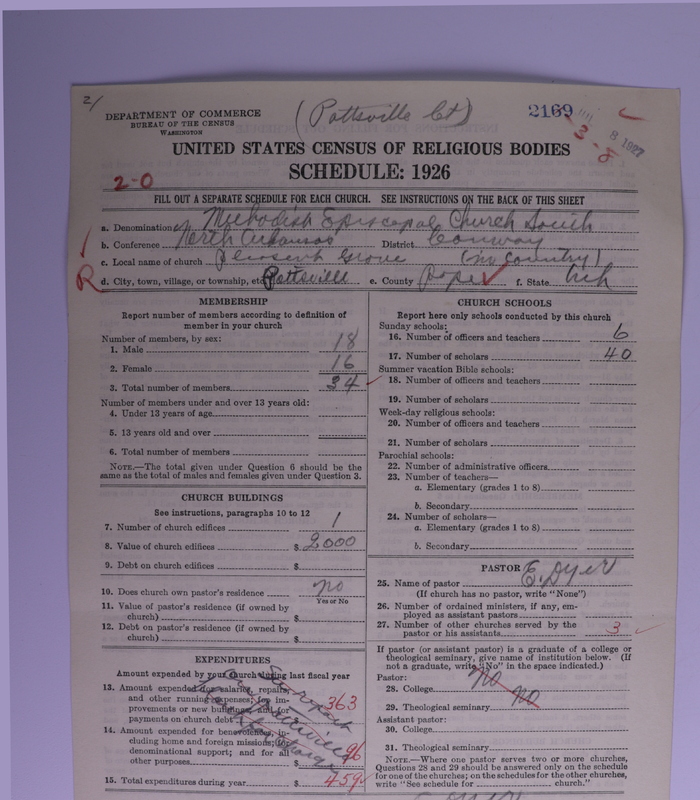 2/
(Pottsville Ct)
2169
3-8
8 1927
DEPARTMENT OF COMMERCE
BUREAU OF THE CENSUS
WASHINGTON
UNITED STATES CENSUS OF RELIGIOUS BODIES
SCHEDULE: 1926
2-0
FILL OUT A SEPARATE SCHEDULE FOR EACH CHURCH. SEE INSTRUCTIONS ON THE BACK OF THIS SHEET
a. Denomination Methodist Episcopal Church South
b. Conference North Arkansas District Conway
c. Local name of church Pleasent Grove (in Country)
R d. City, town, village, or township, etc. Pottsville e. County Pope f. State Ark
MEMBERSHIP
Report number of members according to definition of
member in your church
Number of members, by sex:
1. Male 18
2. Female 16
3. Total number of members 34
Number of members under and over 13 years old:
4. Under 13 years of age
5. 13 years old and over
6. Total number of members
NOTE.—The total given under Question 6 should be the
same as the total of males and females given under Question 3.
CHURCH BUILDINGS
See instructions, paragraphs 10 to 12
7. Number of church edifices 1
8. Value of church edifices $2000
9. Debt on church edifices $
10. Does church own pastor's residence no
Yes or No
11. Value of pastor's residence (if owned by
church) $
12. Debt on pastor's residence (if owned by
church) $
EXPENDITURES
Amount expended by your church during last fiscal year
13. Amount expended for salaries, repairs,
and other running expenses; for im-
provements or new buildings; and for
payments on church debt 363
14. Amount expended for benevolences, in-
cluding home and foreign missions; for
denominational support; and for all
other purposes 96
15. Total expenditures during year 459
See report
Pottsville
CHURCH SCHOOLS
Report here only schools conducted by this church
Sunday schools:
16. Number of officers and teachers 6
17. Number of scholars 40
Summer vacation Bible schools:
18. Number of officers and teachers
19. Number of scholars
Week-day religious schools:
20. Number of officers and teachers
21. Number of scholars
Parochial schools:
22. Number of administrative officers
23. Number of teachers—
a. Elementary (grades 1 to 8)
b. Secondary
24. Number of scholars—
a. Elementary (grades 1 to 8)
b. Secondary
PASTOR
25. Name of pastor E. Dyer
(If church has no pastor, write "None")
26. Number of ordained ministers, if any, em-
ployed as assistant pastors
27. Number of other churches served by the
pastor or his assistants 3
If pastor (or assistant pastor) is a graduate of a college or
theological seminary, give name of institution below. (If
not a graduate, write "No" in the space indicated.)
Pastor:
28. College no
29. Theological seminary no
Assistant pastor:
30. College
31. Theological seminary
NOTE.—Where one pastor serves two or more churches,
Questions 28 and 29 should be answered only on the schedule
for one of the churches; on the schedules for the other churches,
write "See schedule for church."